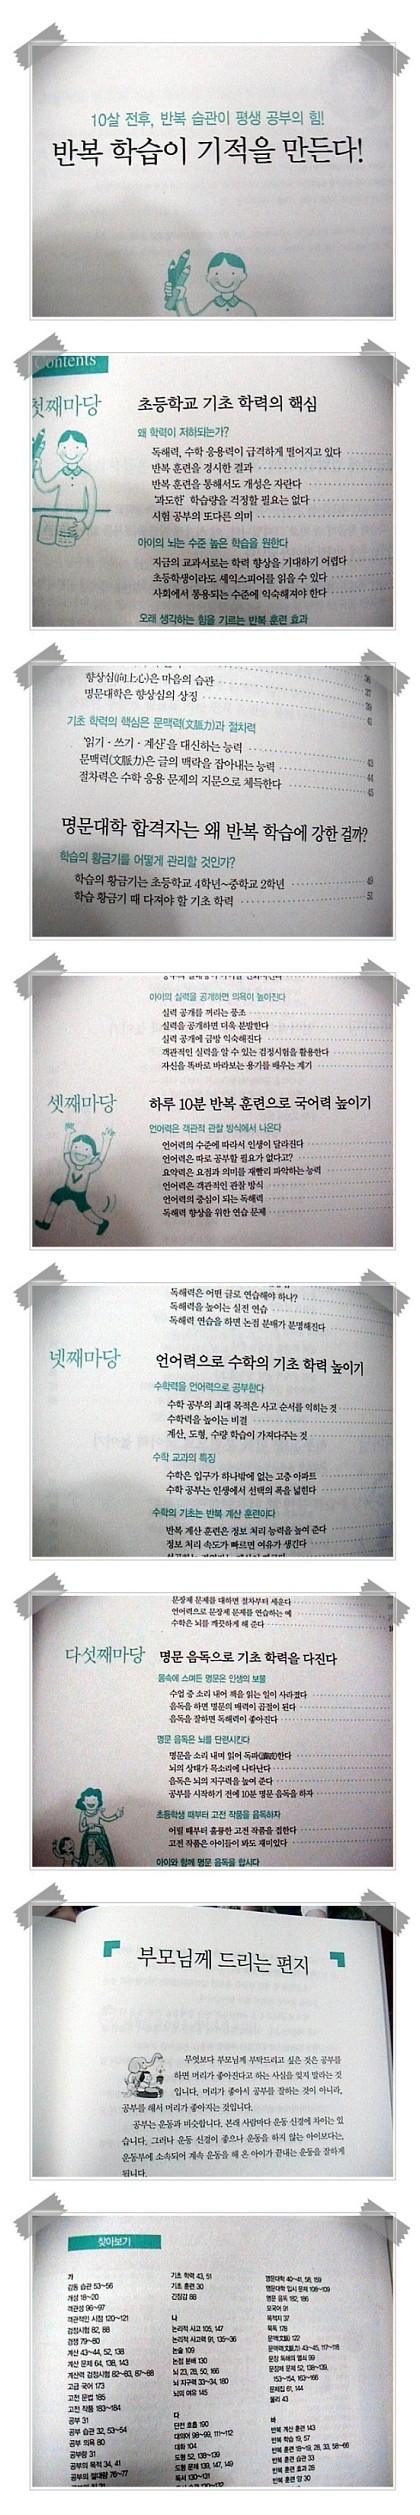 10살 전후, 반복 습관이 평생 공부의 힘!
반복 학습이 기적을 만든다!
Contents
첫째마당
초등학교 기초 학력의 핵심
왜 학력이 저하되는가?
독해력, 수학 응용력이 급격하게 떨어지고 있다
반복 훈련을 경시한 결과
반복 훈련을 통해서도 개성은 자란다
'과도한' 학습량을 걱정할 필요는 없다
시험 공부의 또다른 의미
아이의 뇌는 수준 높은 학습을 원한다
지금의 교과서로는 학력 향상을 기대하기 어렵다
초등학생이라도 셰익스피어를 읽을 수 있다
사회에서 통용되는 수준에 익숙해져야 한다
오래 생각하는 힘을 기르는 반복 훈련 효과
향상심(向上心)은 마음의 습관
명문대학은 향상심의 상징
기초 학력의 핵심은 문맥력(文脈力)과 절차력
'읽기·쓰기·계산'을 대신하는 능력 43
문맥력(文脈力)은 글의 맥락을 잡아내는 능력 44
절차력은 수학 응용 문제의 지문으로 체득한다 45
명문대학 합격자는 왜 반복 학습에 강한 걸까?
학습의 황금기를 어떻게 관리할 것인가?
학습의 황금기는 초등학교 4학년~중학교 2학년 49
학습 황금기 때 다져야 할 기초 학력 51
아이의 실력을 공개하면 의욕이 높아진다
실력 공개를 꺼리는 풍조
실력을 공개하면 더욱 분발한다
실력 공개에 금방 익숙해진다
객관적인 실력을 알 수 있는 검정시험을 활용한다
자신을 똑바로 바라보는 용기를 배우는 계기
셋째마당
하루 10분 반복 훈련으로 국어력 높이기
언어력은 객관적 관찰 방식에서 나온다
언어력의 수준에 따라서 인생이 달라진다
언어력은 따로 공부할 필요가 없다고?
요약력은 요점과 의미를 재빨리 파악하는 능력
언어력은 객관적인 관찰 방식
언어력의 중심이 되는 독해력
독해력 향상을 위한 연습 문제
독해력은 어떤 글로 연습해야 하나?
독해력을 높이는 실전 연습
독해력 연습을 하면 논점 분배가 분명해진다
넷째마당
언어력으로 수학의 기초 학력 높이기
수학력을 언어력으로 공부한다
수학 공부의 최대 목적은 사고 순서를 익히는 것
수학력을 높이는 비결
계산, 도형, 수량 학습이 가져다주는 것
수학 교과의 특징
수학은 입구가 하나밖에 없는 고층 아파트
수학 공부는 인생에서 선택의 폭을 넓힌다
수학의 기초는 반복 계산 훈련이다
반복 계산 훈련은 정보 처리 능력을 높여 준다
정보 처리 속도가 빠르면 여유가 생긴다
문장제 문제를 대하면 절차부터 세운다
언어력으로 문장제 문제를 연습하는 예
수학은 뇌를 깨끗하게 해 준다
다섯째마당
명문 음독으로 기초 학력을 다진다
몸속에 스며든 명문은 인생의 보물
수업 중 소리 내어 책을 읽는 일이 사라졌다
음독을 하면 명문의 매력이 곱절이 된다
음독을 잘하면 독해력이 좋아진다
명문 음독은 뇌를 단련시킨다
명문을 소리 내며 읽어 독파(讀破)한다
뇌의 상태가 목소리에 나타난다
음독은 뇌의 지구력을 높여 준다
공부를 시작하기 전에 10분 명문 음독을 하자
초등학생 때부터 고전 작품을 음독하자
어릴 때부터 훌륭한 고전 작품을 접한다
고전 작품은 아이들이 봐도 재미있다
아이와 함께 명문 음독을 합시다
부모님께 드리는 편지
무엇보다 부모님께 부탁드리고 싶은 것은 공부를
하면 머리가 좋아진다고 하는 사실을 잊지 말라는 것
입니다. 머리가 좋아서 공부를 잘하는 것이 아니라,
공부를 해서 머리가 좋아지는 것입니다.
공부는 운동과 비슷합니다. 본래 사람마다 운동 신경에 차이는 있
습니다. 그러나 운동 신경이 좋으나 운동을 하지 않는 아이보다는,
운동부에 소속되어 계속 운동을 해 온 아이가 끝내는 운동을 잘하게
됩니다.
찾아보기
가
감동 습관 53~56
개성 18~20
객관성 96~97
객관적인 시점 120~121
검정시험 82, 88
경험 79~80
계산 43~44, 52, 138
계산 문제 64, 138, 143
계산력 검정시험 82~83, 87~88
고급 국어 173
고전 문법 185
고전 작품 183~184
공부 31
공부 습관 32, 53~54
공부 의욕 80
공부량 31
공부의 목적 34, 41
공부의 절대량 76~77
기초 학력 43, 51
기초 훈련 30
긴장감 88
나
논리적 사고 105, 147
논리적 사고력 91, 135~36
논술 109
논점 분배 130
뇌 23, 28, 50, 166
뇌 지구력 33~34, 180
뇌의 여유 145
다
단전 호흡 190
대의어 98~99, 111~112
대화 104
도형 52, 138~139
도형 문제 139, 147, 149
독서 130~131
명문대학 40~41, 58, 159
명문대학 입시 문제 108~109
명문 음독 182, 186
모국어 91
목적지 37
묵독 178
문맥(文脈) 122
문맥력(文脈力) 43~45, 117~118
문장 독해의 열쇠 99
문장제 문제 52, 138~139,
153~154, 163~166
문제집 61, 144
물리 43
바
반복 계산 훈련 143
반복 학습 19, 57
반복 훈련 18~19, 28, 33, 58~66
반복 훈련 습관 33
반복 훈련 효과 28
반복 훈련 양 30